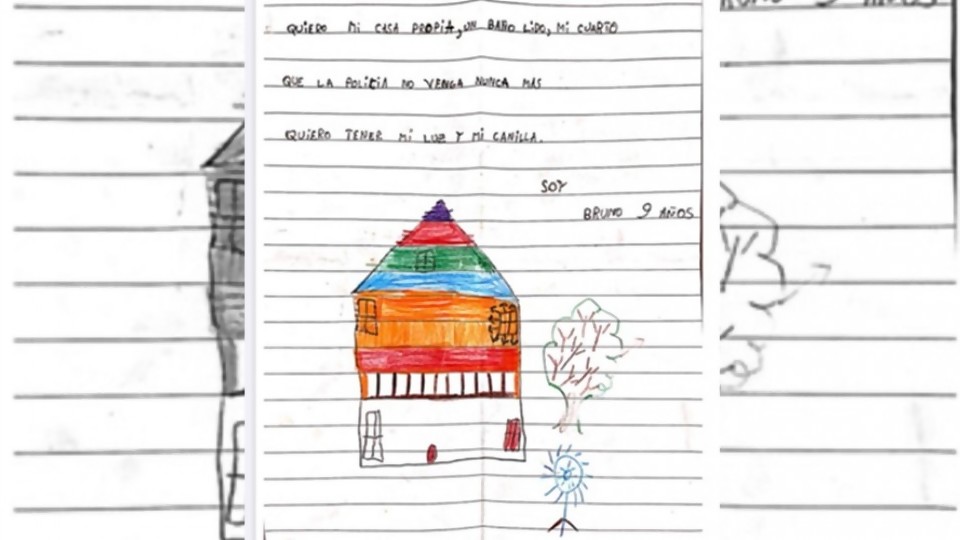 QUIERO Mi CASA PROPIA, UN BAÑO LiDO, Mi CUARTO
QUE LA POLICIA NO VENGA NUNCA MAS
QUIERO TENER Mi LUZ Y Mi CANILLA.
SOY
BRUNO 9 AÑOS